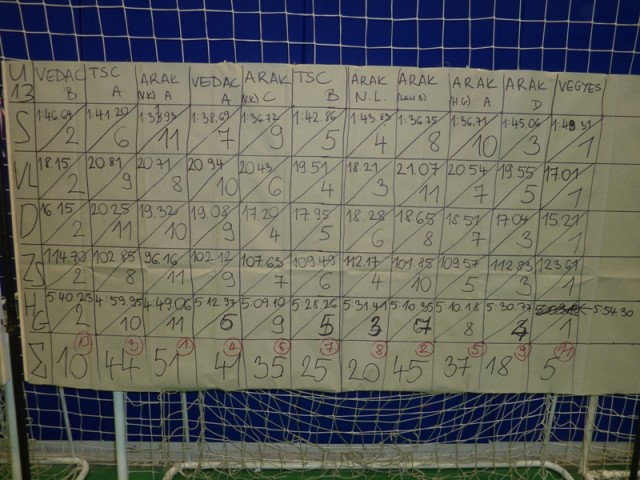 U 13 VEDAC B TSC A ARAK (NK) A VEDAC A ARAK (NK) C TSC B ARAK N.L. ARAK (LILI B) ARAK (H G) A ARAK D VEGYES
S 1:46.64 1:41.20 1:38.69 1:36.72 1:42.86 1:43.83 1:36.75 1:36.71 1:45.06
2 6 11 7 9 5 4 8 10 3 1
VL 18.15 20.81 20.71 20.94 20.43 19.51 18.21 21.07 20.54 19.55 17.01
2 9 8 10 6 4 3 11 7 5 1
D 16.15 20.25 19.32 19.08 17.20 17.95 18.28 18.65 18.51 17.04 15.21
2 11 10 9 4 5 6 8 7 3 1
ZS 114.70 102.85 96.16 102.12 107.63 109.49 112.17 101.85 109.57 112.83 123.61
2 8 11 9 7 6 4 10 5 3 1
HG 5:40.23 4:59.95 4:49.06 5:12.97 5:09.10 5:28.26 5:31.41 5:10.35 5:10.18 5:30.77 5:54.30
2 10 11 6 9 5 3 7 8 4 1
Σ 10 44 51 41 35 25 20 45 37 18 5
10 3 1 4 6 7 8 2 5 9 11